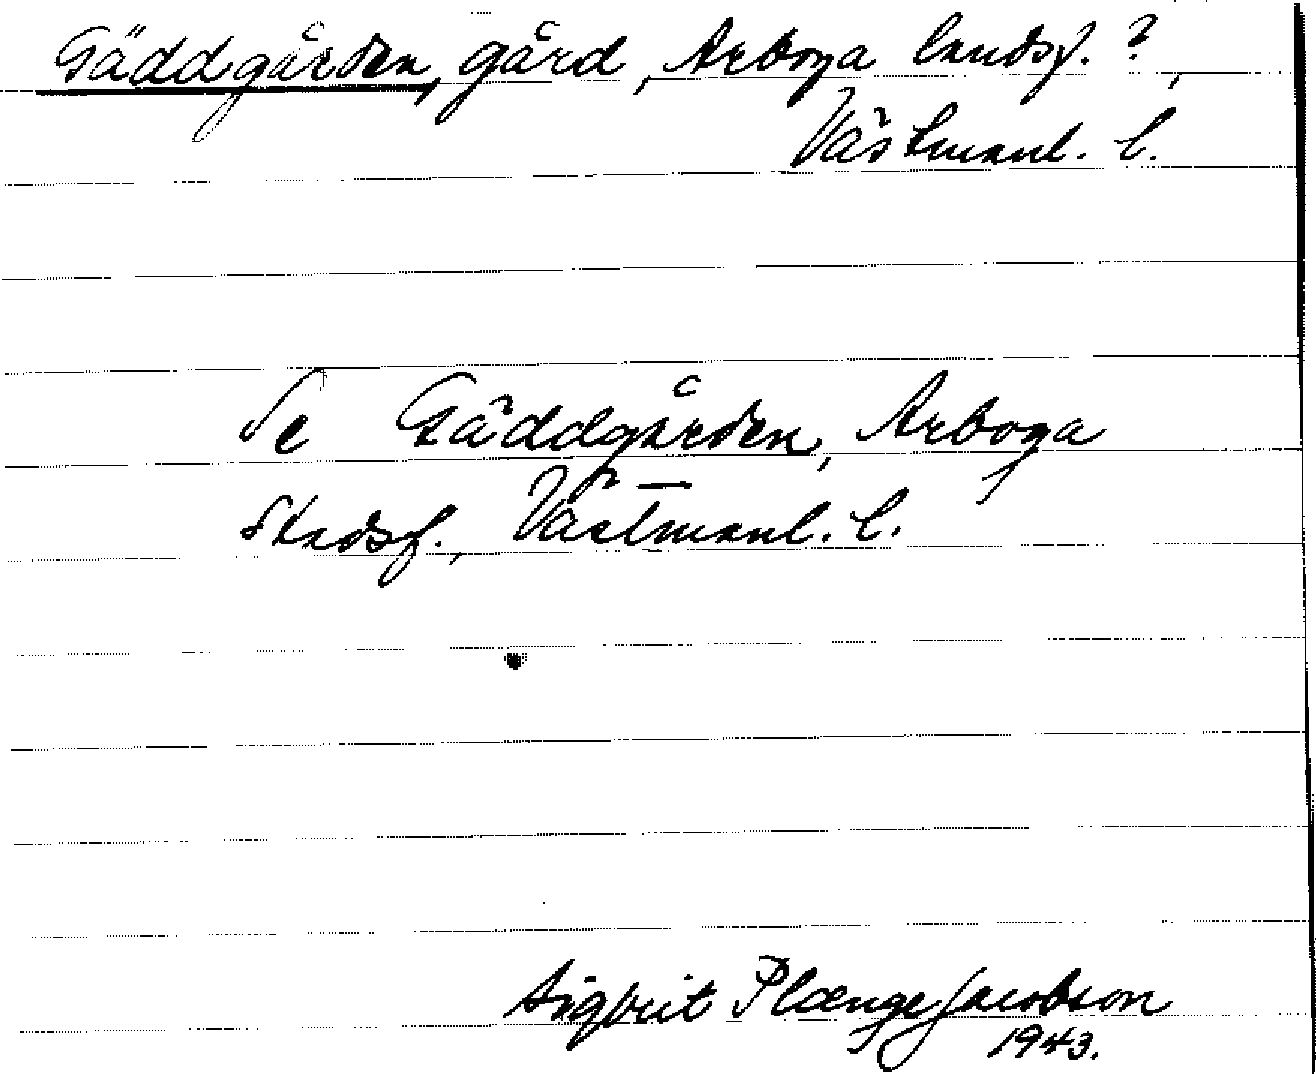 Gäddgården, gård, Arboga landsf. ?,
Västmanl. l.
Se Gäddgården, Arboga
Stadsf., Västmanl. l.
Sigfrit Plænge Jacobson
1943.